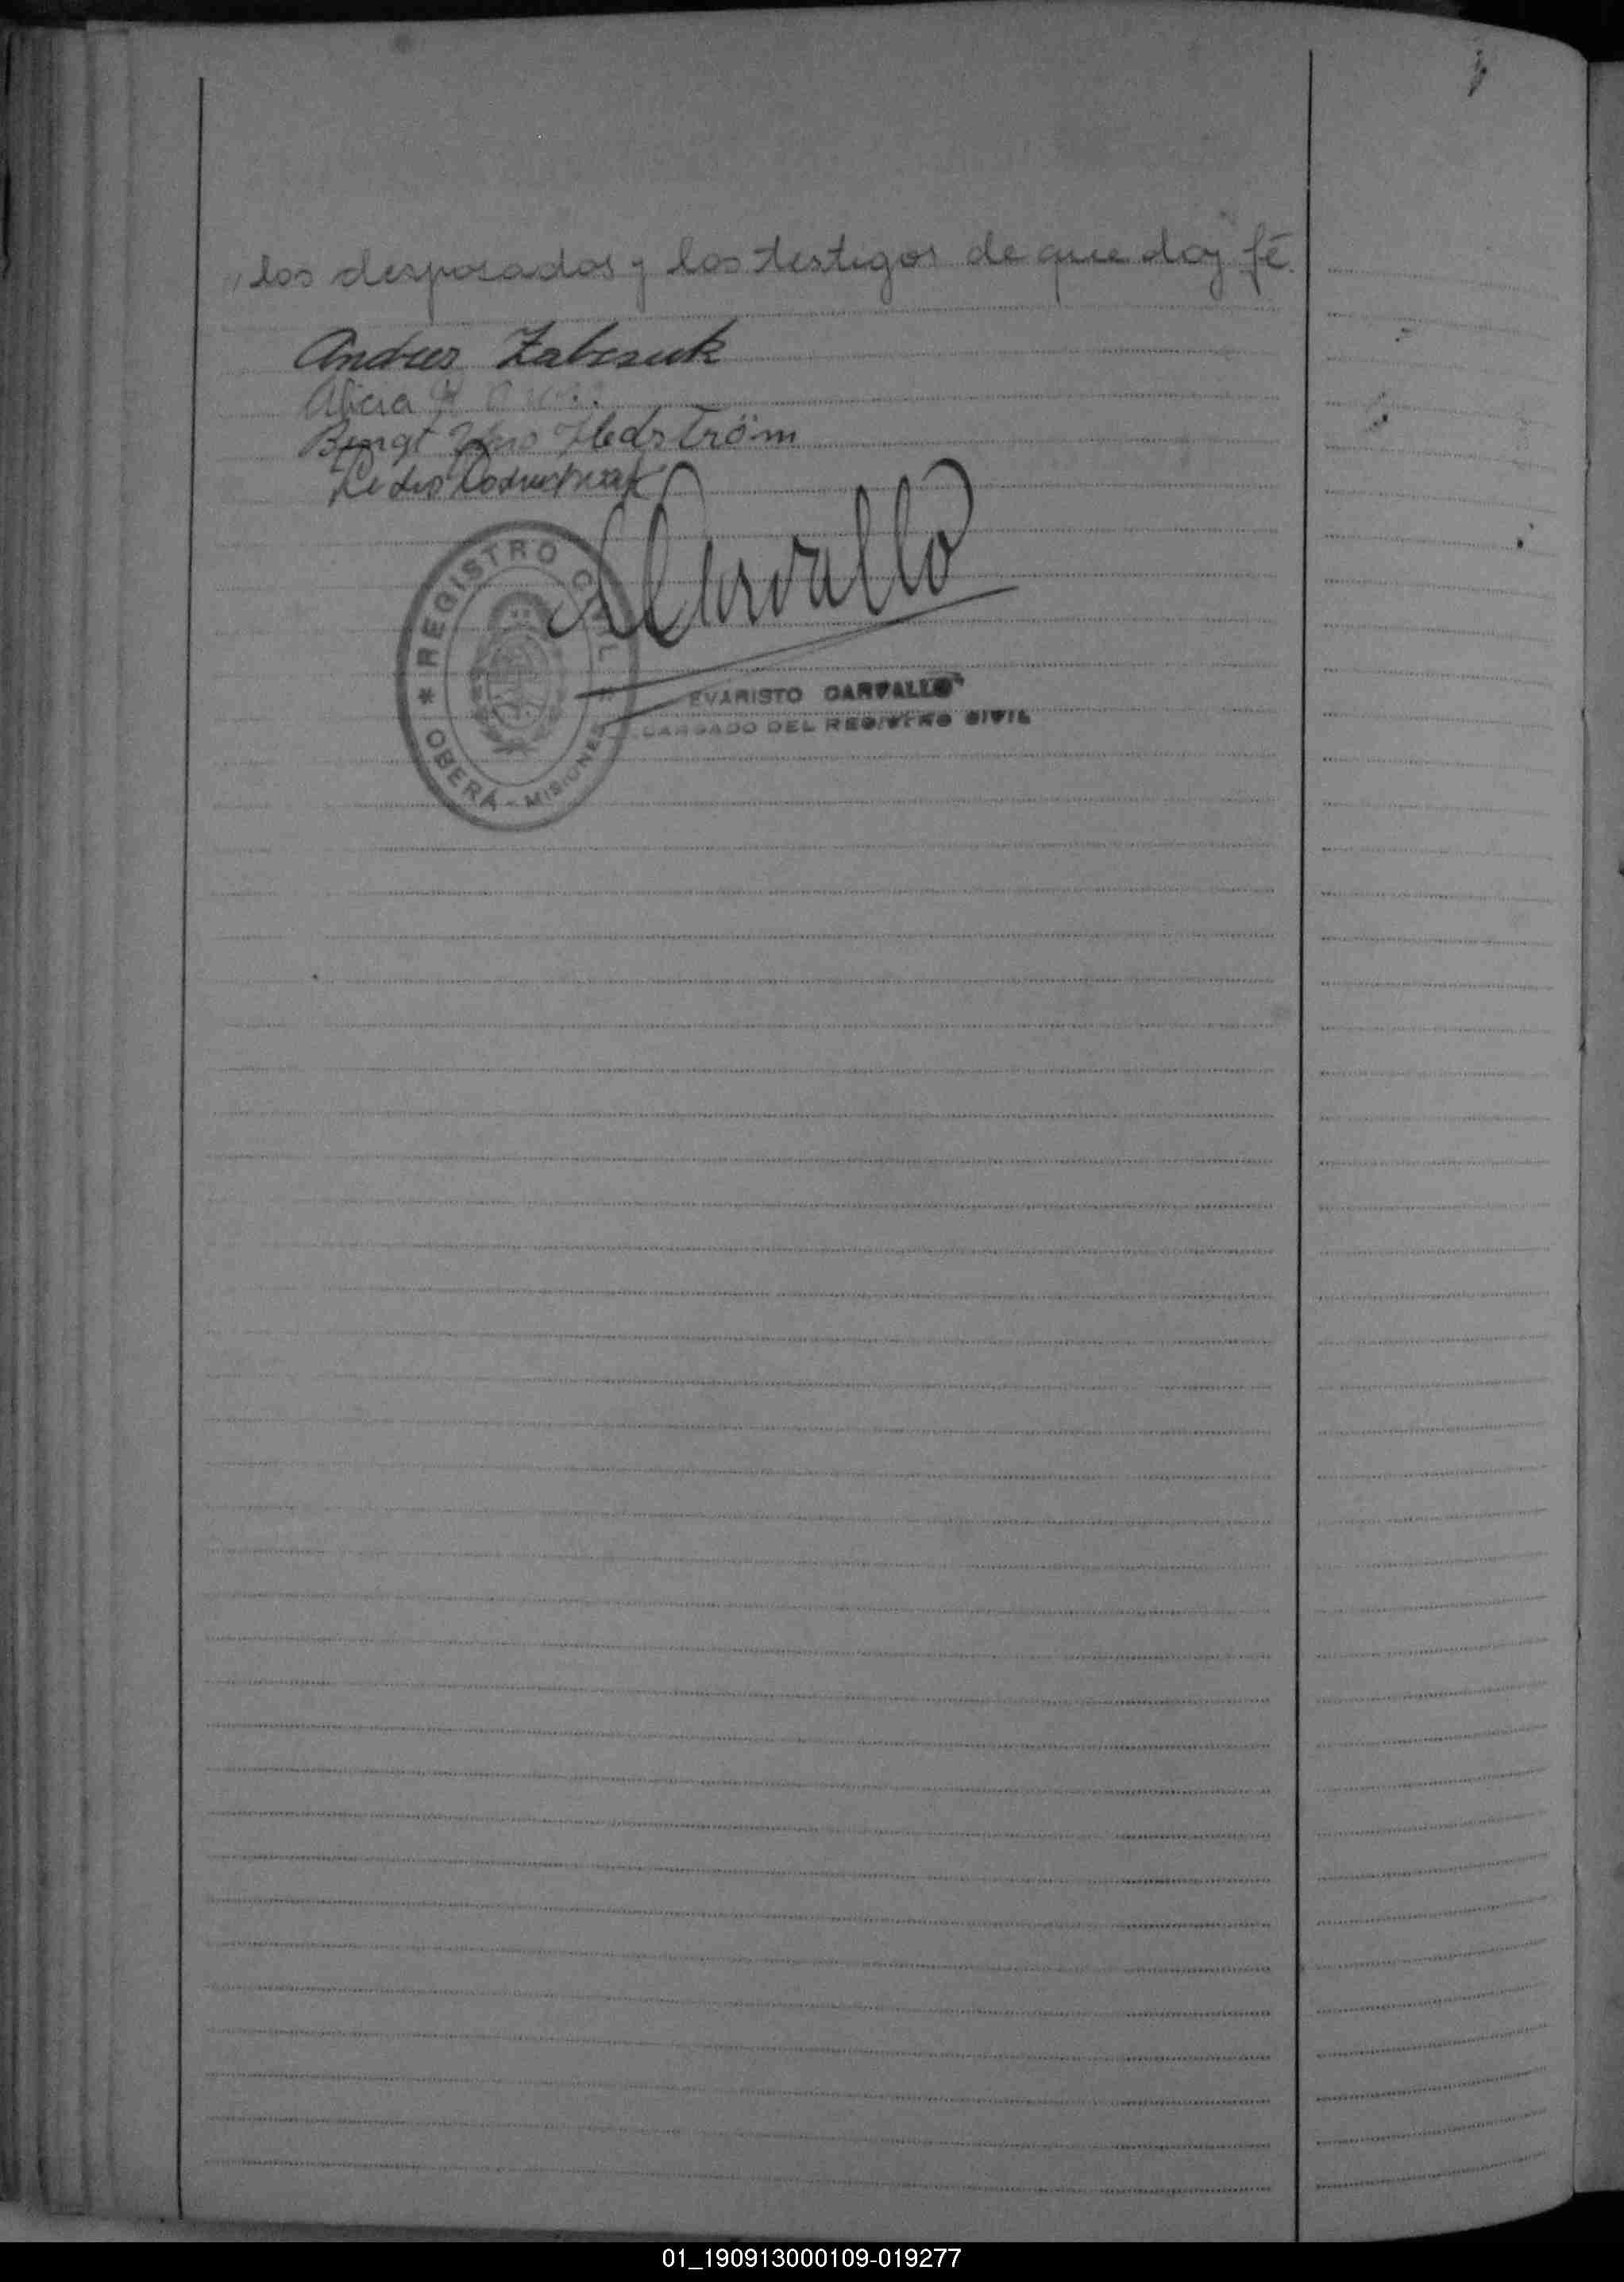 los desposados y los testigos de que doy fé.
Andres Zabczuk
Alicia
Bengt Hedström
Pedro
Carvallo
REGISTRO CIVIL
* OBERÁ - MISIONES *
EVARISTO CARVALLO
CARGADO DEL REGISTRO CIVIL
01_190913000109-019277